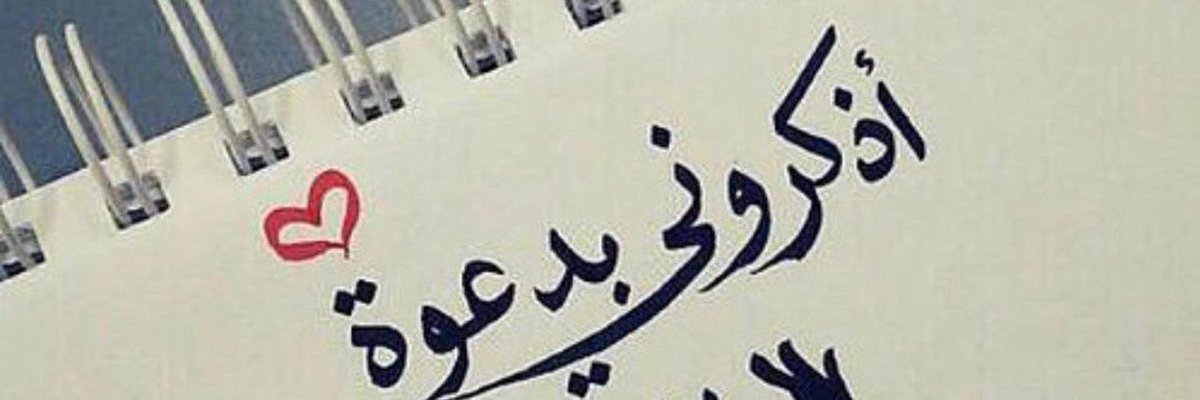 أذكروني بدعوة